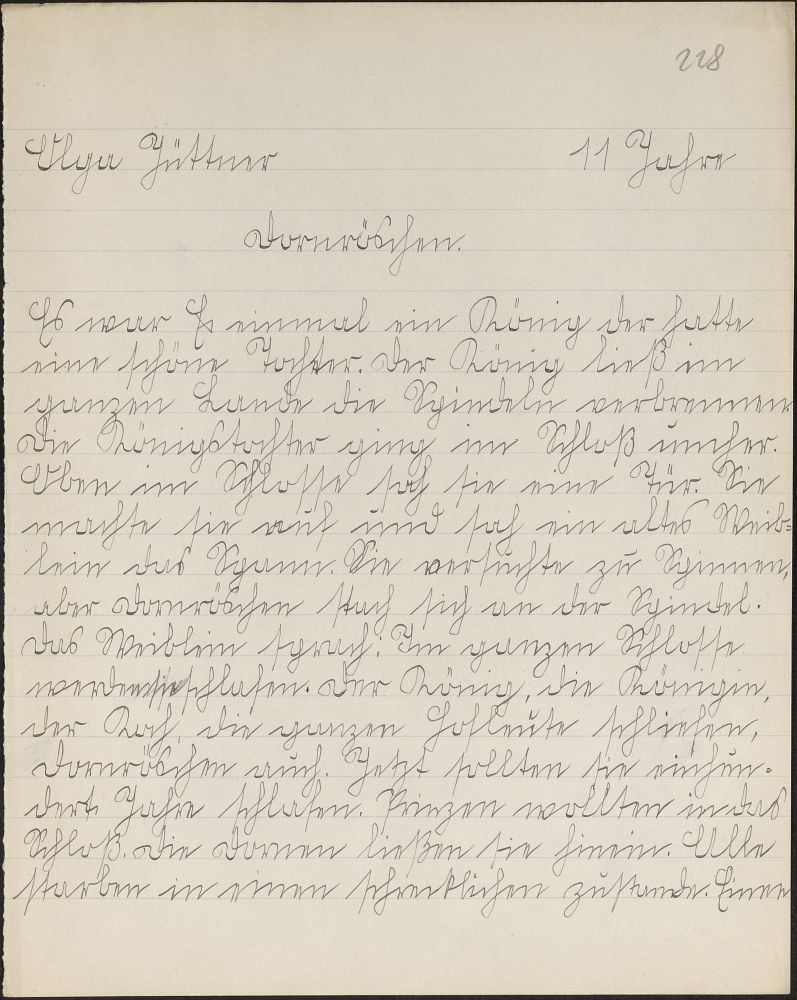 228
Olga Jüttner 11 Jahre
Dornröschen.
Es war Es einmal ein König der hatte
eine schöne Tochter. Der König ließ im
ganzen Lande die Spindeln verbrennen
Die Königstochter ging im Schloß umher.
Oben im Schlosse sah sie eine Tür. Sie
machte sie auf und sah ein altes Weib=
lein das Spann. Sie versuchte zu Spinnen,
aber Dornröschen stach sich an der Spindel.
Das Weiblein sprach: Im ganzen Schlosse
werden sie schlafen. Der König, die Königin,
der Koch, die ganzen Hofleute schliefen,
Dornröschen auch. Jetzt sollten sie einhun-
dert Jahre schlafen. Prinzen wollten in das
Schloß. Die Dornen ließen sie hinein. Alle
starben in einen schrecklichen zustande. Einen